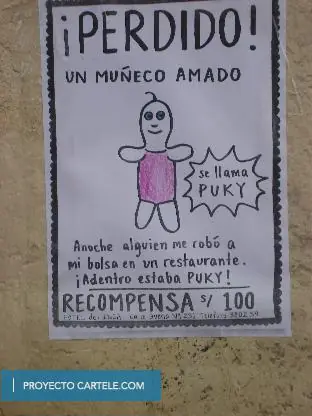 ¡PERDIDO!
UN MUÑECO AMADO
se llama
PUKY
Anoche alguien me robó a
mi bolsa en un restaurante.
¡Adentro estaba PUKY!
RECOMPENSA S/ 100
PROYECTO CARTELE.COM